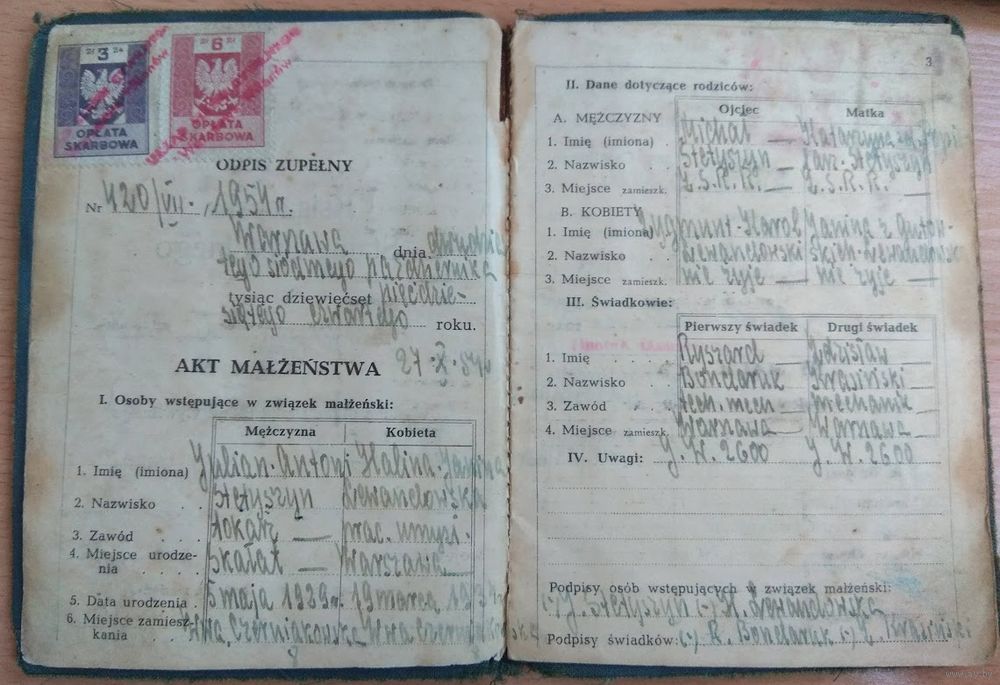 3
OPŁATA
SKARBOWA
6
OPŁATA
SKARBOWA
ODPIS ZUPEŁNY
Nr 420/VII., 1954 r.
Warszawa dnia dwudzies
tego siódmego października
tysiąc dziewięćset pięćdzie-
siątego czwartego roku.
AKT MAŁŻEŃSTWA 27.X.54r.
I. Osoby wstępujące w związek małżeński:
Mężczyzna Kobieta
1. Imię (imiona) Julian-Antoni Halina-Janina
2. Nazwisko Stetyszyn Lewandowska
3. Zawód tokarz — prac. umysł.
4. Miejsce urodze-
nia Skałat — Warszawa
5. Data urodzenia 5 maja 1929r. 19 marca
6. Miejsce zamiesz-
kania Czerniakowska
3
II. Dane dotyczące rodziców:
Ojciec Matka
A. MĘŻCZYZNY
1. Imię (imiona) Michał — Katarzyna
2. Nazwisko Stetyszyn Stetyszyn
3. Miejsce zamieszk. Z.S.R.R. — Z.S.R.R. —
B. KOBIETY
1. Imię (imiona) Zygmunt-Karol Janina z Anton
2. Nazwisko Lewandowski skich-Lewandowska
3. Miejsce zamieszk. nie żyje — nie żyje —
III. Świadkowie:
Pierwszy świadek Drugi świadek
1. Imię Ryszard — Zdzisław —
2. Nazwisko Bondaruk — Krasiński
3. Zawód tech. mech — mechanik
4. Miejsce zamieszk. Warszawa — Warszawa
IV. Uwagi: J. W. 2600 J. W. 2600
Podpisy osób wstępujących w związek małżeński:
(-) J. Stetyszyn (-) H. Lewandowska
Podpisy świadków: (-) R. Bondaruk (-) Z. Krasiński
www.ay.by